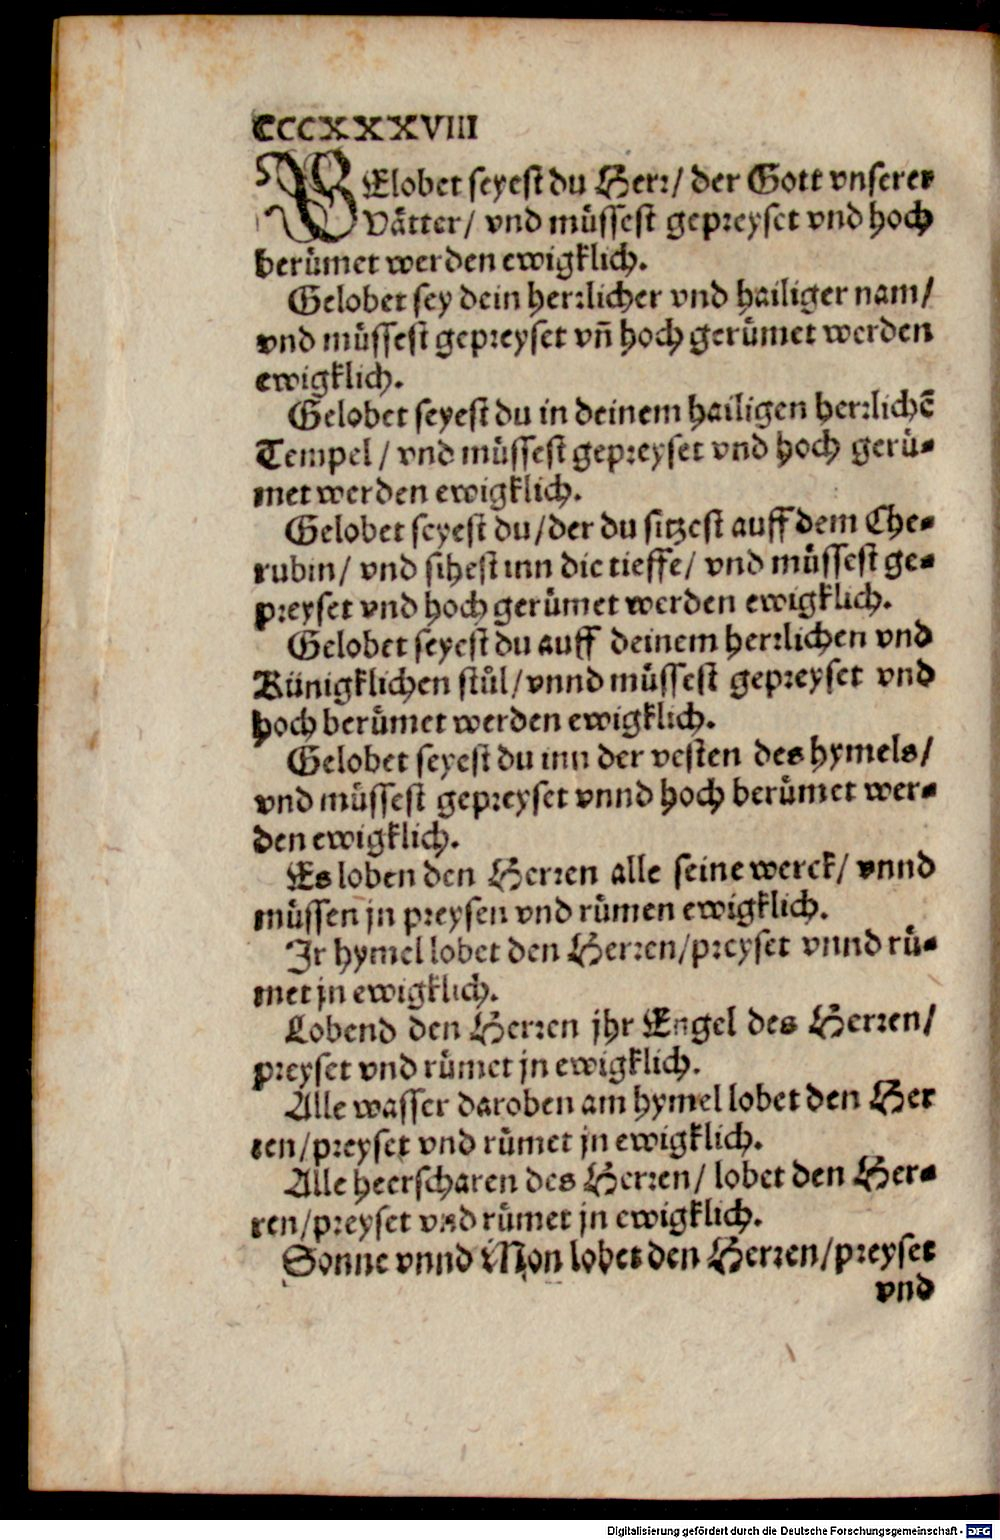 CCCXXXVIII
GElobet seyest du Herr/ der Gott vnserer
Vätter/ vnd müssest gepreyset vnd hoch
berümet werden ewigklich.
Gelobet sey dein herrlicher vnd hailiger nam/
vnd müssest gepreyset vn̄ hoch gerümet werden
ewigklich.
Gelobet seyest du in deinem hailigen herrlichē
Tempel/ vnd müssest gepreyset vnd hoch gerü-
met werden ewigklich.
Gelobet seyest du/der du sitzest auff dem Che-
rubin/ vnd sihest inn die tieffe/ vnd müssest ge-
preyset vnd hoch gerümet werden ewigklich.
Gelobet seyest du auff deinem herrlichen vnd
Künigklichen stůl/vnnd müssest gepreyset vnd
hoch berümet werden ewigklich.
Gelobet seyest du inn der vesten des hymels/
vnd müssest gepreyset vnnd hoch berümet wer-
den ewigklich.
Es loben den Herren alle seine werck/ vnnd
müssen jn preysen vnd rümen ewigklich.
Jr hymel lobet den Herren/preyset vnnd rü-
met jn ewigklich.
Lobend den Herren jhr Engel des Herren/
preyset vnd rümet jn ewigklich.
Alle wasser daroben am hymel lobet den Her
ren/preyset vnd rümet jn ewigklich.
Alle heerscharen des Herren/ lobet den Her-
ren/preyset vnd rümet jn ewigklich.
Sonne vnnd Mon lobet den Herren/preyset
vnd
Digitalisierung gefördert durch die Deutsche Forschungsgemeinschaft - DFG